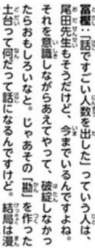 冨樫:「一話ですごい人数を出した」っていう人は、
尾田先生もそうだけど、今までいるんですよね。
それを意識しながらあえてやって、破綻しなかっ
たらおもしろいなと。じゃあその「勘」を作った
土台って何だって話になるんですけど。結局は漫